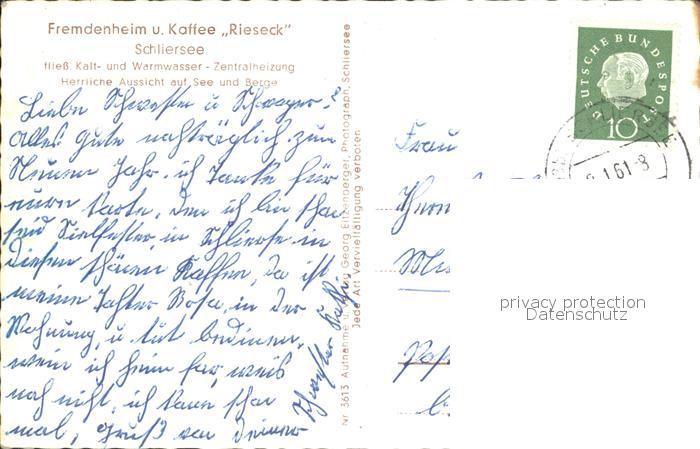 Fremdenheim u. Kaffee „Rieseck"
Schliersee
fließ. Kalt- und Warmwasser - Zentralheizung
Herrliche Aussicht auf See und Berge
Liebe Schwester u Schwager!
Alles gute nachträglich zum
Neuen Jahr. ich danke für
eure Karte, den ich bin schon
seid in Schliersee in
diesen schönen Kaffee, da ist
meine Tochter Rosa, in der
Wohnung, u. tut bedienen,
wein ich heim far, weis
noch nicht, ich kann schon
mal, gruß von deiner
Schwester
Nr. 3613 Aufnahme u. Georg Eitzenberger, Photograph, Schliersee
Jede Art Vervielfältigung verboten
DEUTSCHE BUNDESPOST
10
.1.61-8
Frau
privacy protection
Datenschutz